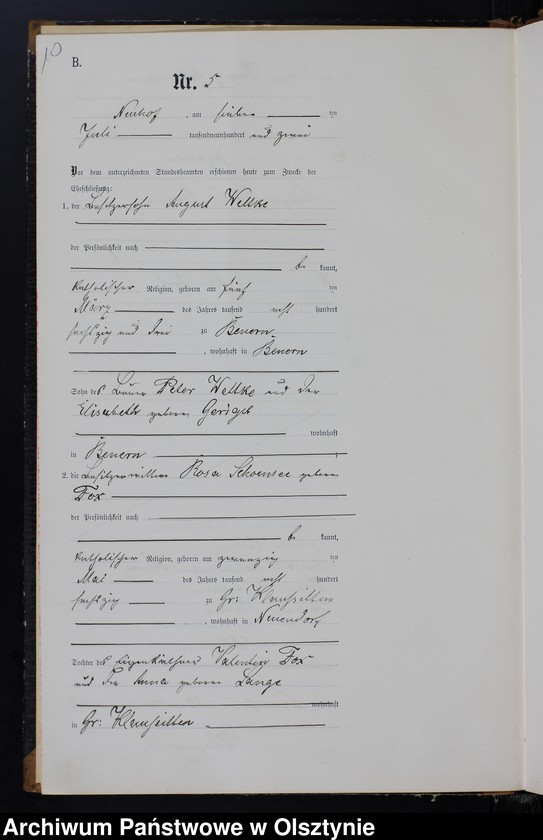 10
B.
Nr. 5
Neuhof, am sieben ten
Juli tausendneunhundert und zwei
Vor dem unterzeichneten Standesbeamten erschienen heute zum Zwecke der
Eheschließung:
1. der Besitzersohn August Weltke
der Persönlichkeit nach
be kannt,
katholischer Religion, geboren am fünf ten
März des Jahres tausend acht hundert
sechszig und drei zu Benern
, wohnhaft in Benern
Sohn des Bauer Peter Weltke und der
Elisabeth geboren Gerigk
wohnhaft
in Benern
2. die Besitzerwittwe Rosa Schoensee geboren
Fox
der Persönlichkeit nach
be kannt,
katholischer Religion, geboren am zwanzig ten
Mai des Jahres tausend acht hundert
sechszig zu Gr: Klaussitten
, wohnhaft in Neuendorf
Tochter des Eigenkäthner Valentin Fox
und der Anna geboren Lange
wohnhaft
in Gr: Klaussitten
Archiwum Państwowe w Olsztynie